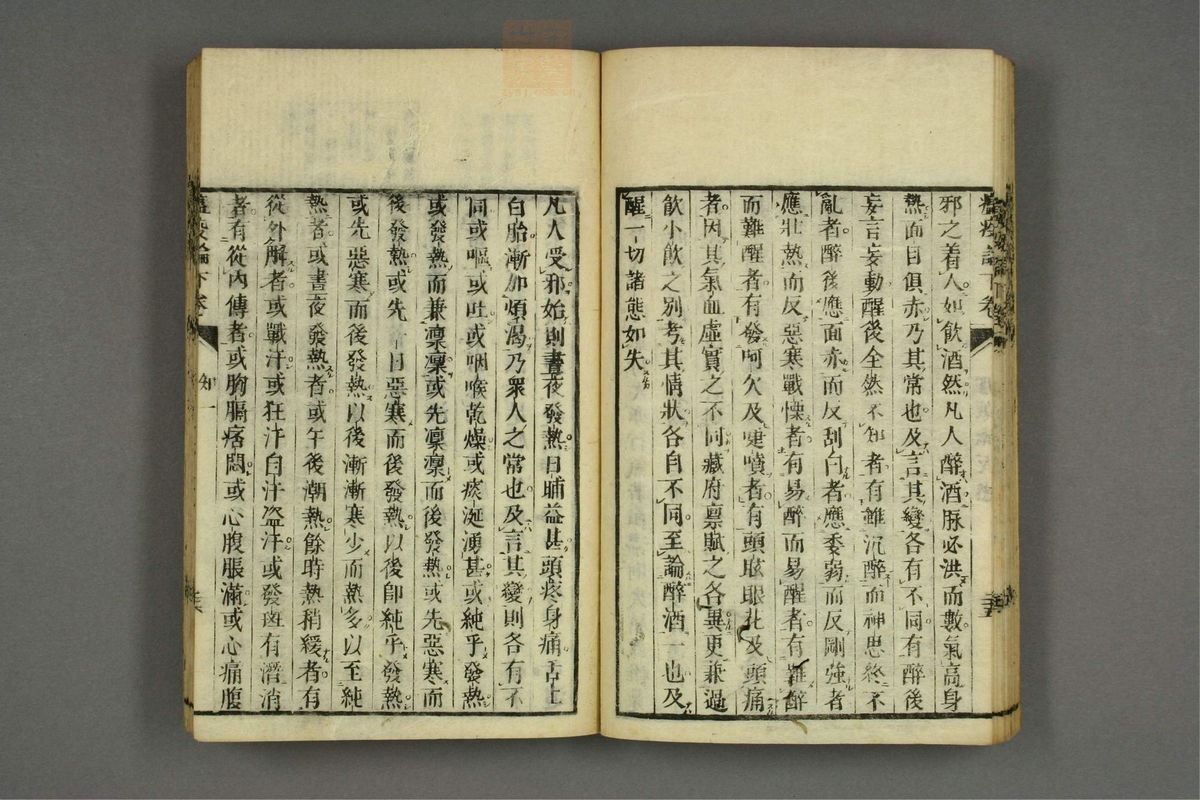 瘟疫論下卷
邪之着人如飲酒然凡人醉酒脉必洪而數氣高身
熱面目俱赤乃其常也及言其變各有不同有醉後
妄言妄動醒後全然不知者有雖沉醉而神思終不
亂者醉後應面赤而反刮白者應委弱而反剛強者
應壯熱而反惡寒戰慄者有易醉而易醒者有難醉
而難醒者有發呵欠及嚏噴者有頭眩眼花及頭痛
者因其氣血虛實之不同藏府禀賦之各異更兼過
飲小飲之別考其情狀各自不同至論醉酒一也及
醒一切諸態如失
凡人受邪始則晝夜發熱日晡益甚頭疼身痛舌上
白胎漸加煩渴乃衆人之常也及言其變則各有不
同或嘔或吐或咽喉乾燥或痰涎湧甚或純乎發熱
或發熱而兼凛凛或先凛凛而後發熱或先惡寒而
後發熱或先一日惡寒而後發熱以後即純乎發熱
或先惡寒而後發熱以後漸漸寒少而熱多以至純
熱者或晝夜發熱者或午後潮熱餘時熱稍緩者有
從外解者或戰汗或狂汗自汗盗汗或發斑有潛消
者有從內傳者或胸膈痞悶或心腹脹滿或心痛腹
瘟疫論下卷